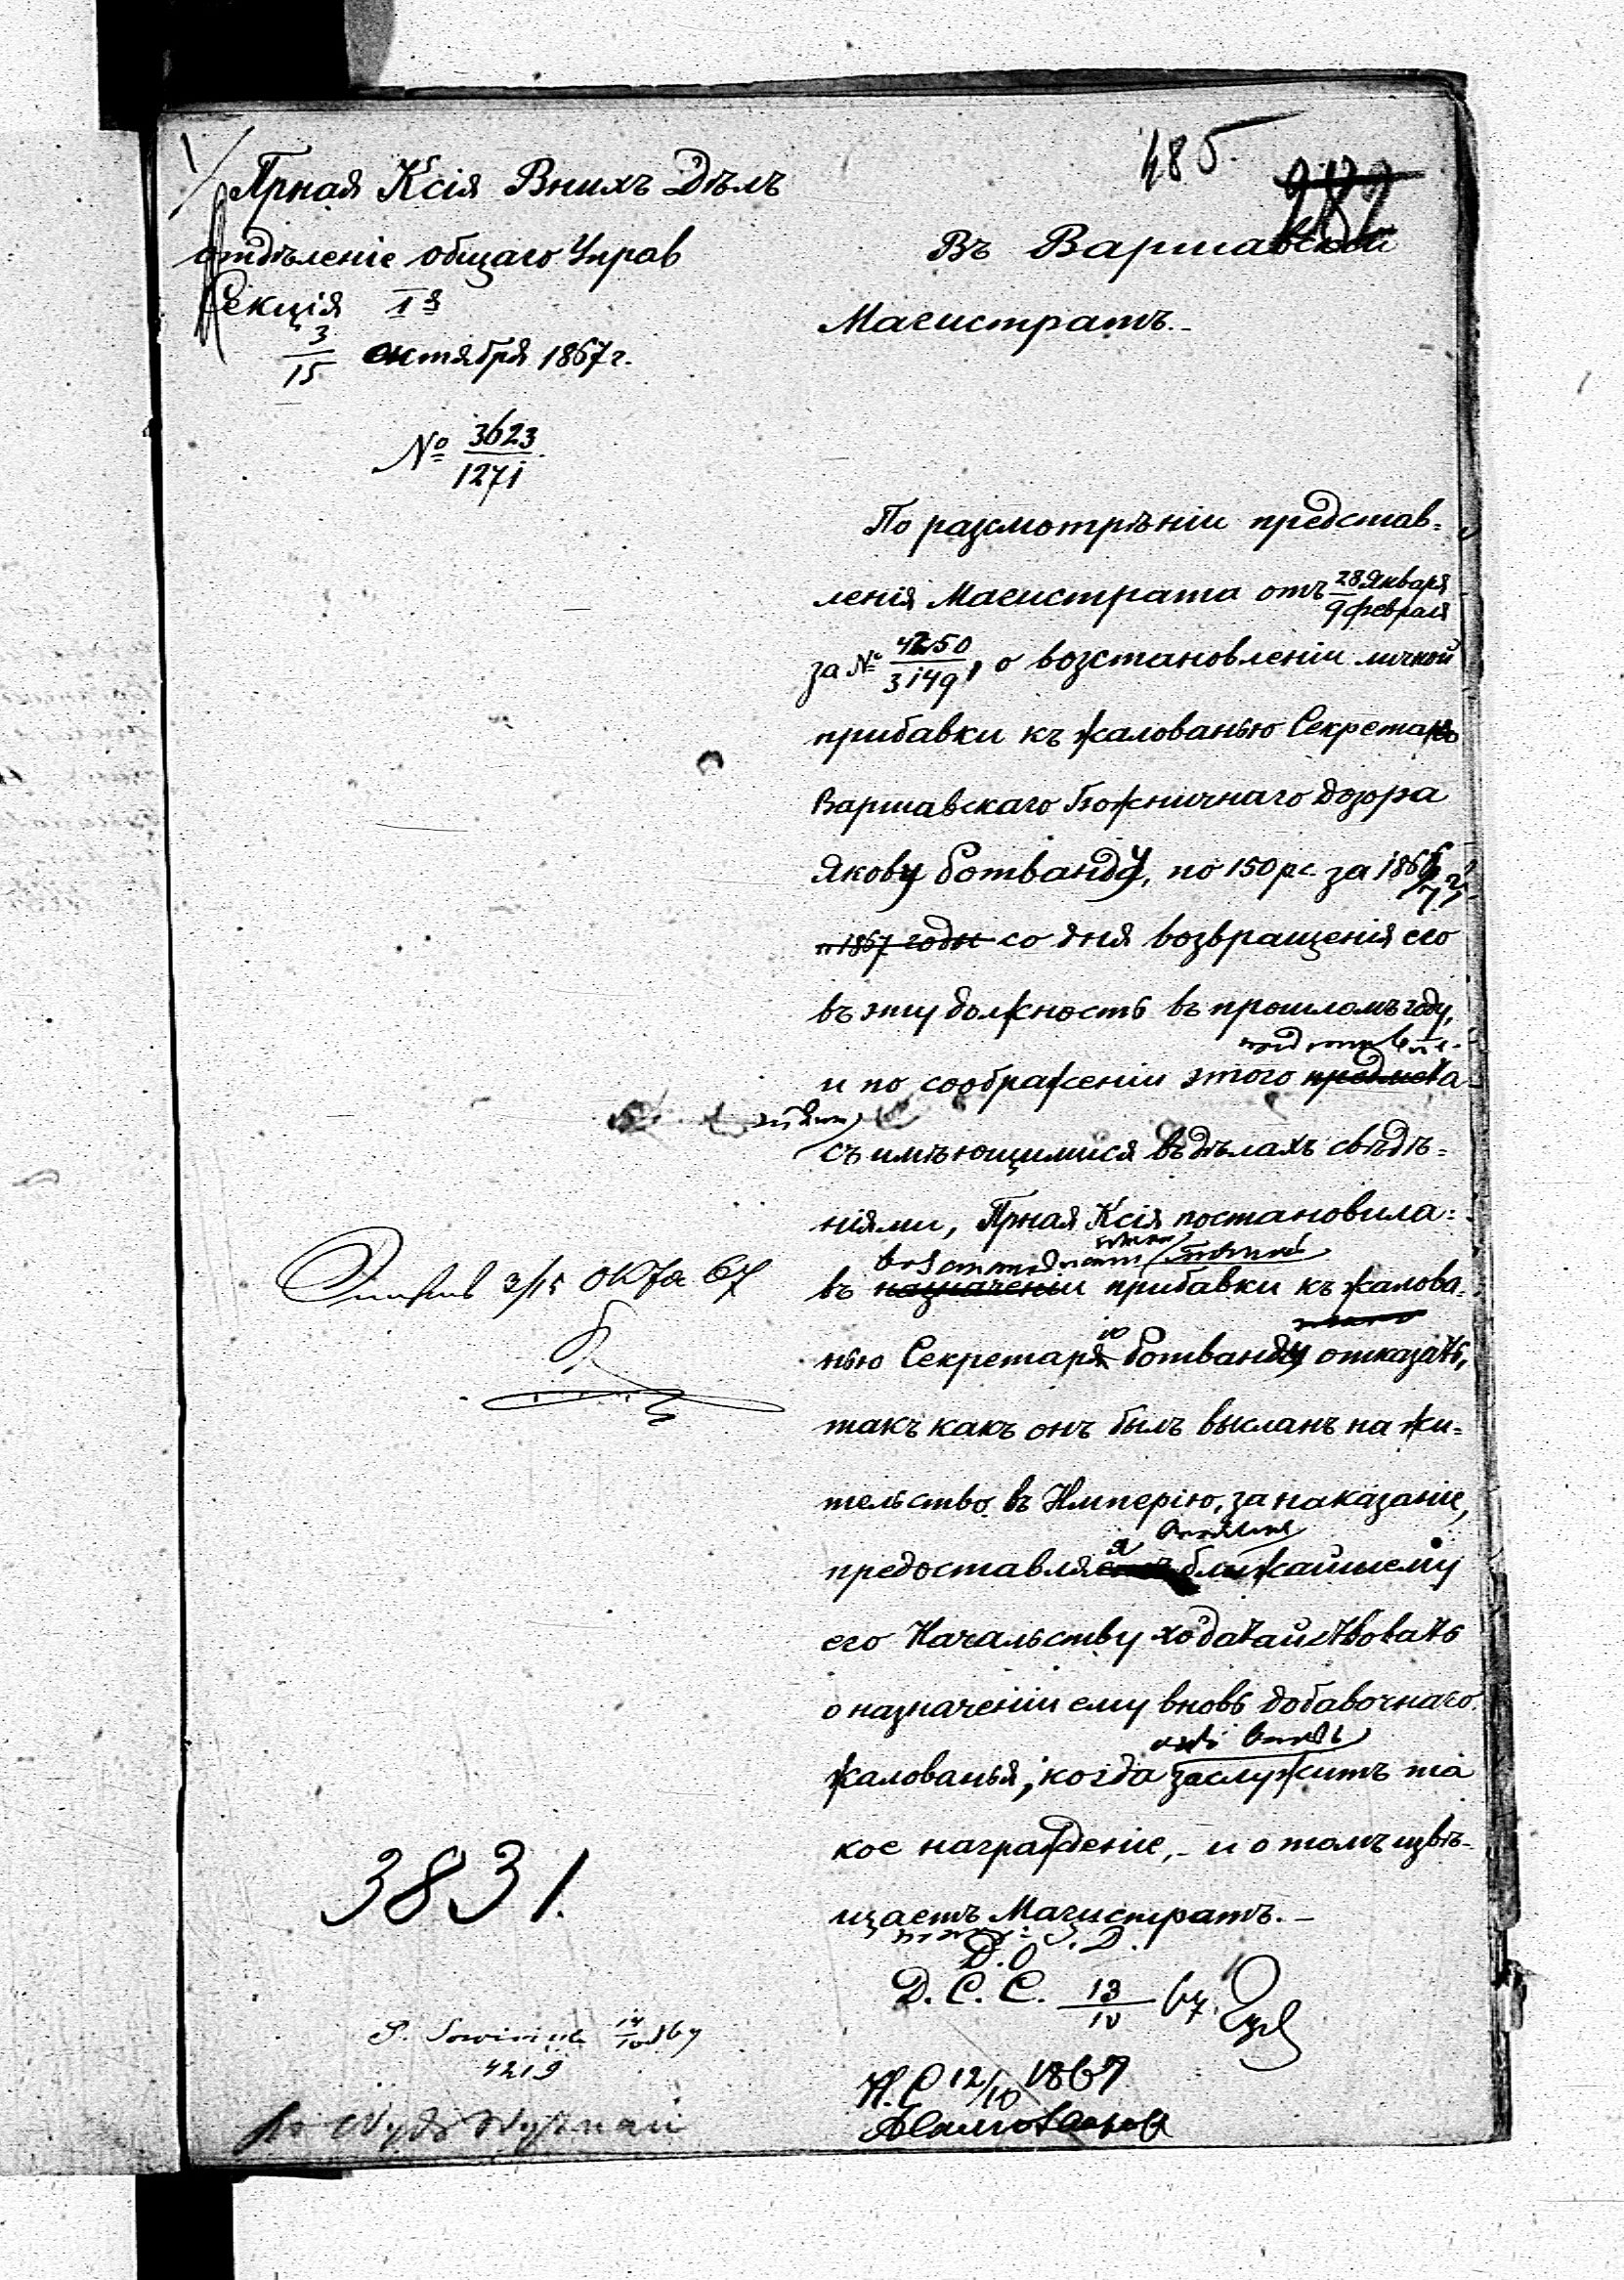 485.
282
Прная Ксія Внихъ Дѣлъ
отдѣленіе общаго Управ
Секція I я
3/15 октября 1867 г.
№ 3623/1271
Въ Варшавскій
Магистратъ.-
По разсмотрѣніи представ=
ленія Магистрата отъ 28 Января/9 февраля
за № /3149, о возстановленіи личной
прибавки къ жалованью Секретарю
Варшавскаго Божничнаго дозора
Якову Ботванду, по 150 рс. за
и 1867 годы со дня возвращенія его
въ эту должность въ прошломъ году,
и по соображеніи этого предмета
съ имѣющимися въ дѣлахъ свѣдѣ=
ніями, Прная Ксія постановила:
въ назначеніи прибавки къ жалова=
нью Секретарю Ботванду отказать,
такъ какъ онъ былъ высланъ на жи=
тельство въ Имперію, за наказаніе,
предоставляя ближайшему
его Начальству ходатайствовать
о назначеніи ему вновь добавочнаго
жалованья, когда заслужитъ та
кое награжденіе,- и о томъ извѣ-
щаетъ Магистратъ.-
3/15 67
3831.
Д. О
Д. С. С. 13/10 67.
14/10 867
4219
Н. С 12/10 1867